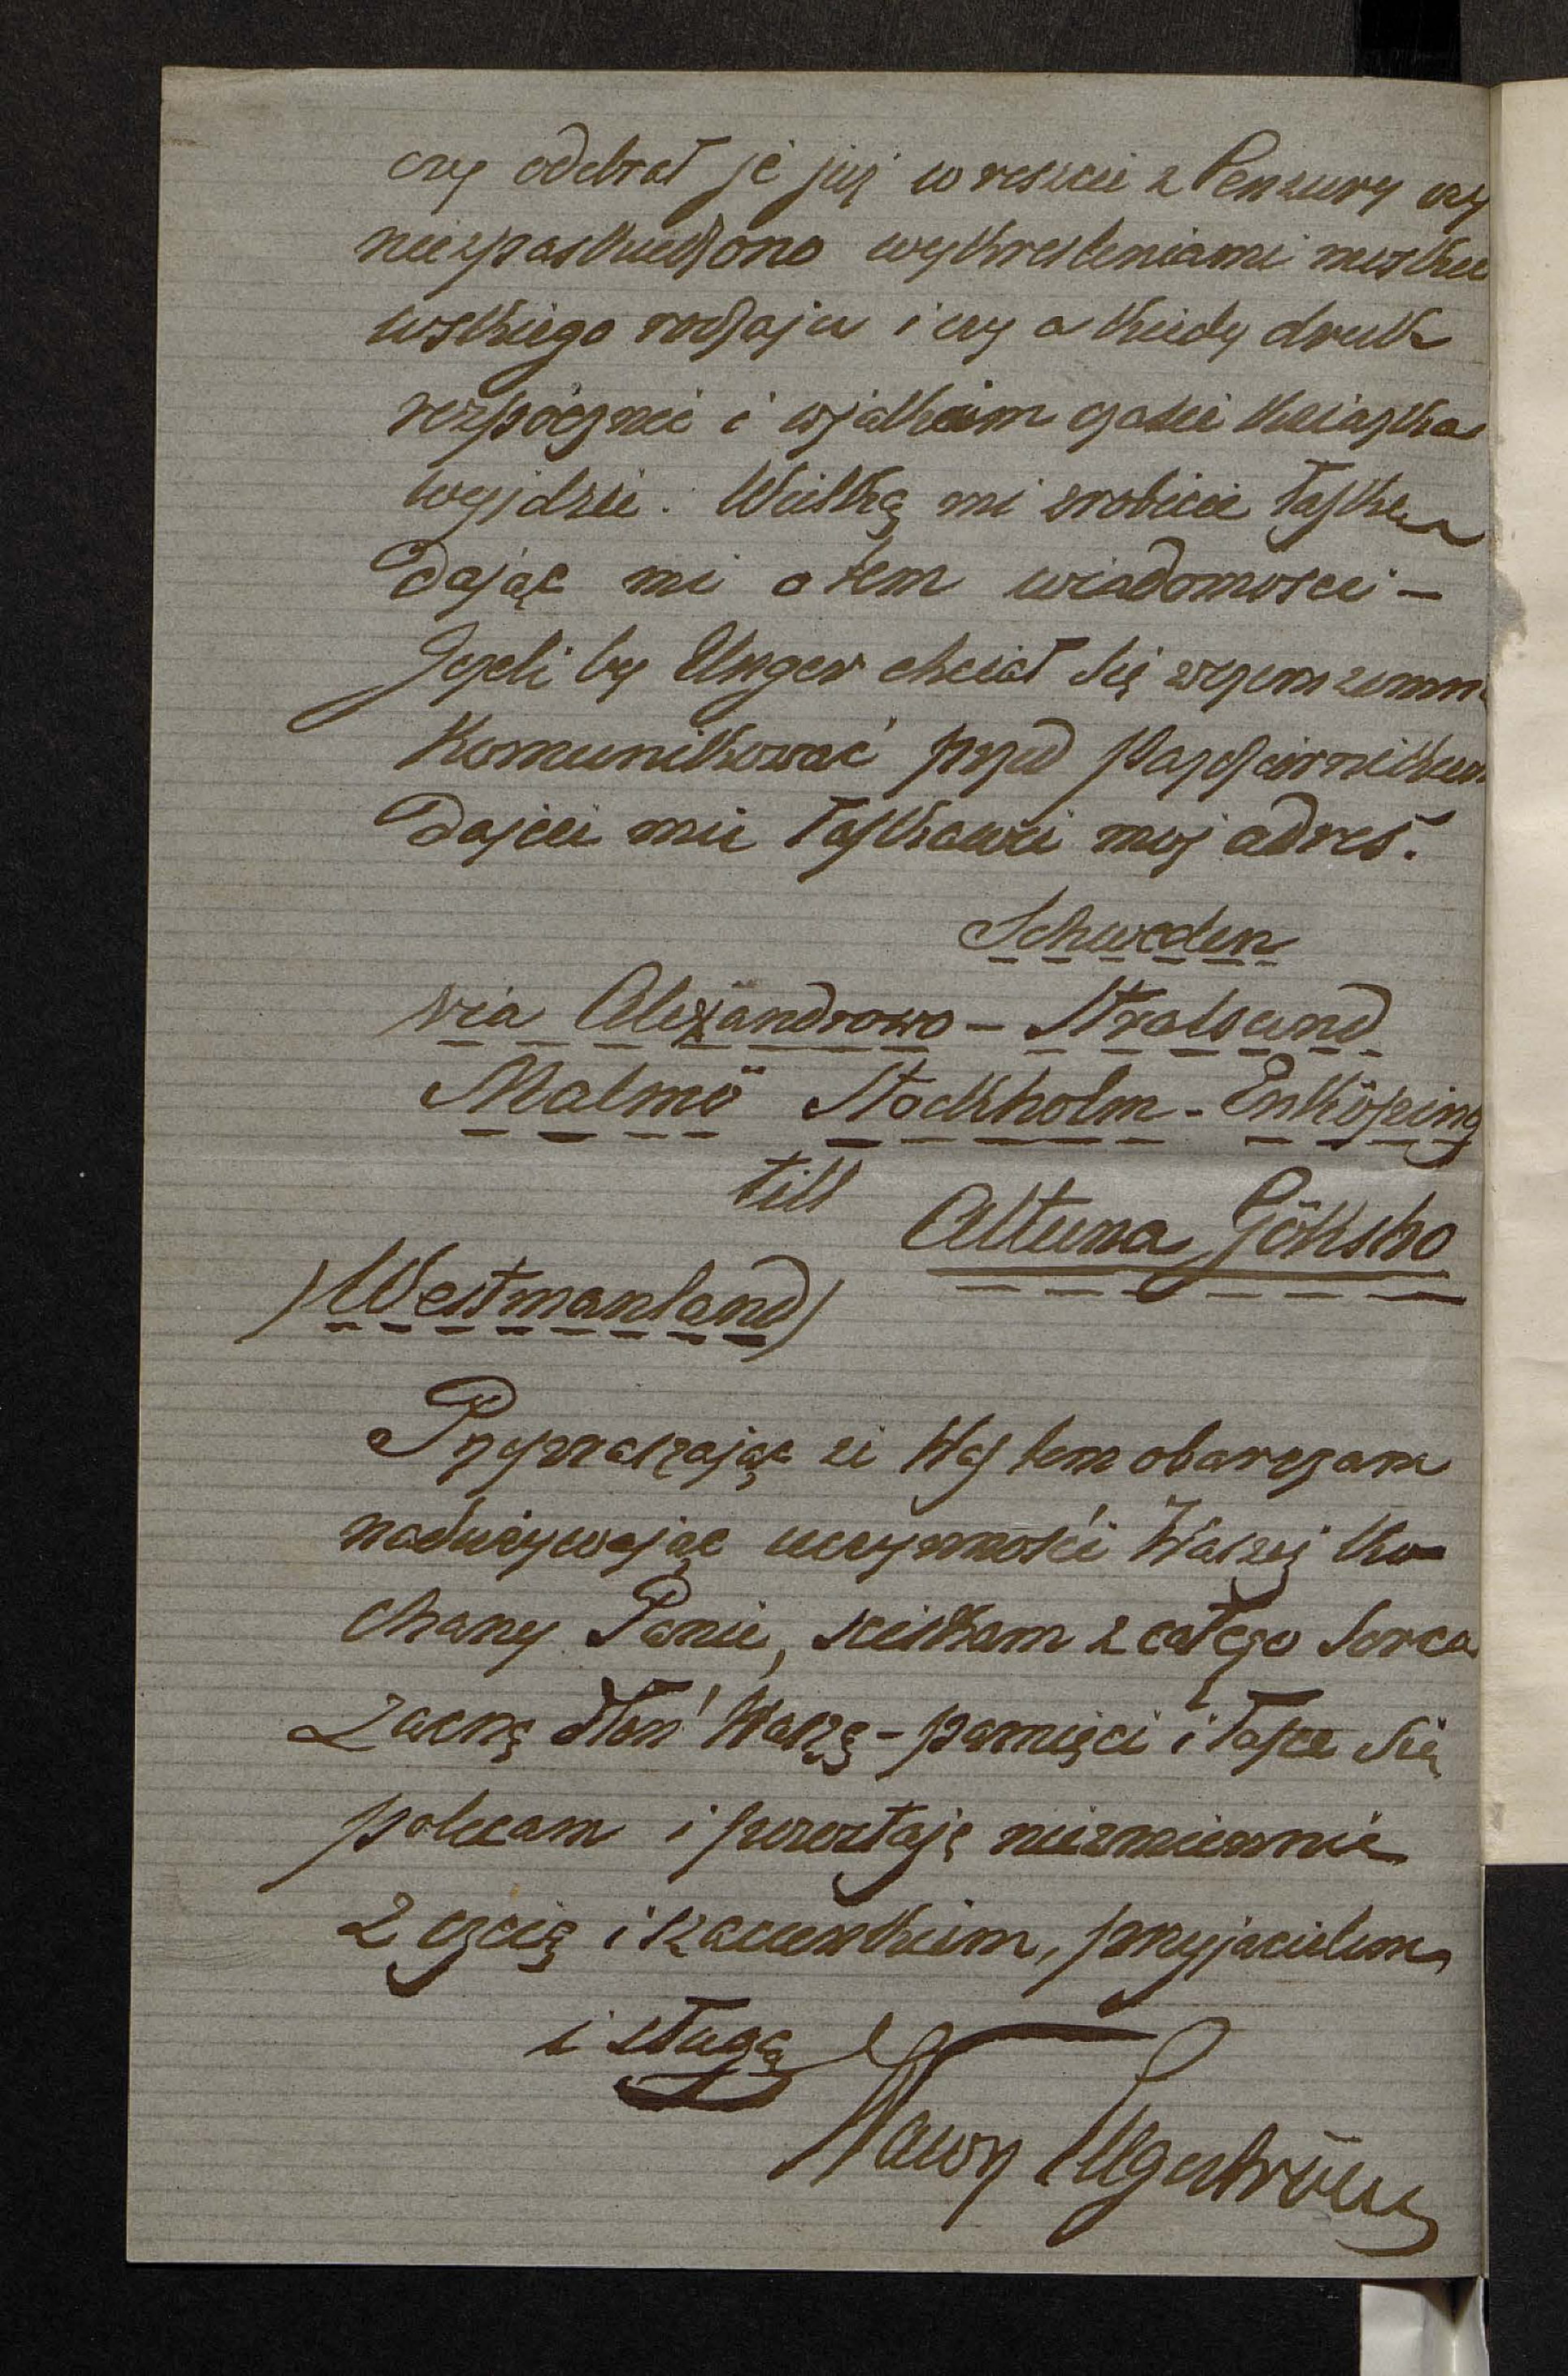 czy odebrał je już w reszcie z Cenzury czy
niezpaskudzono wykresleniami moskie
wskiego rodzaju i czy a kiedy druk
rozpócznie i wjakiem czasie ksiązka
wyjdzie. Wielką mi zrobicie łaskę
dając mi o tem wiadomosci –
Jeżeli by Unger chciał się wczem zemną
komunikować przed Pazdziernikiem
dajcie mu łaskawie moj adres.
Schweden
via Alexandrowo – Stralsund
Malmö Stockholm – Enköping
till Altuna Göksbo
(Westmanland)
Przepraszając że Was tem obarczam
nadużywając uczynności Waszej Ko
chany Panie, sciskam z całego serca
zacną dłoń Waszą – pamięci i łasce się
polecam i pozostaję niezmiennie
z czcią i szacunkiem, przyjacielem
i sługą
Wawrz Engeström